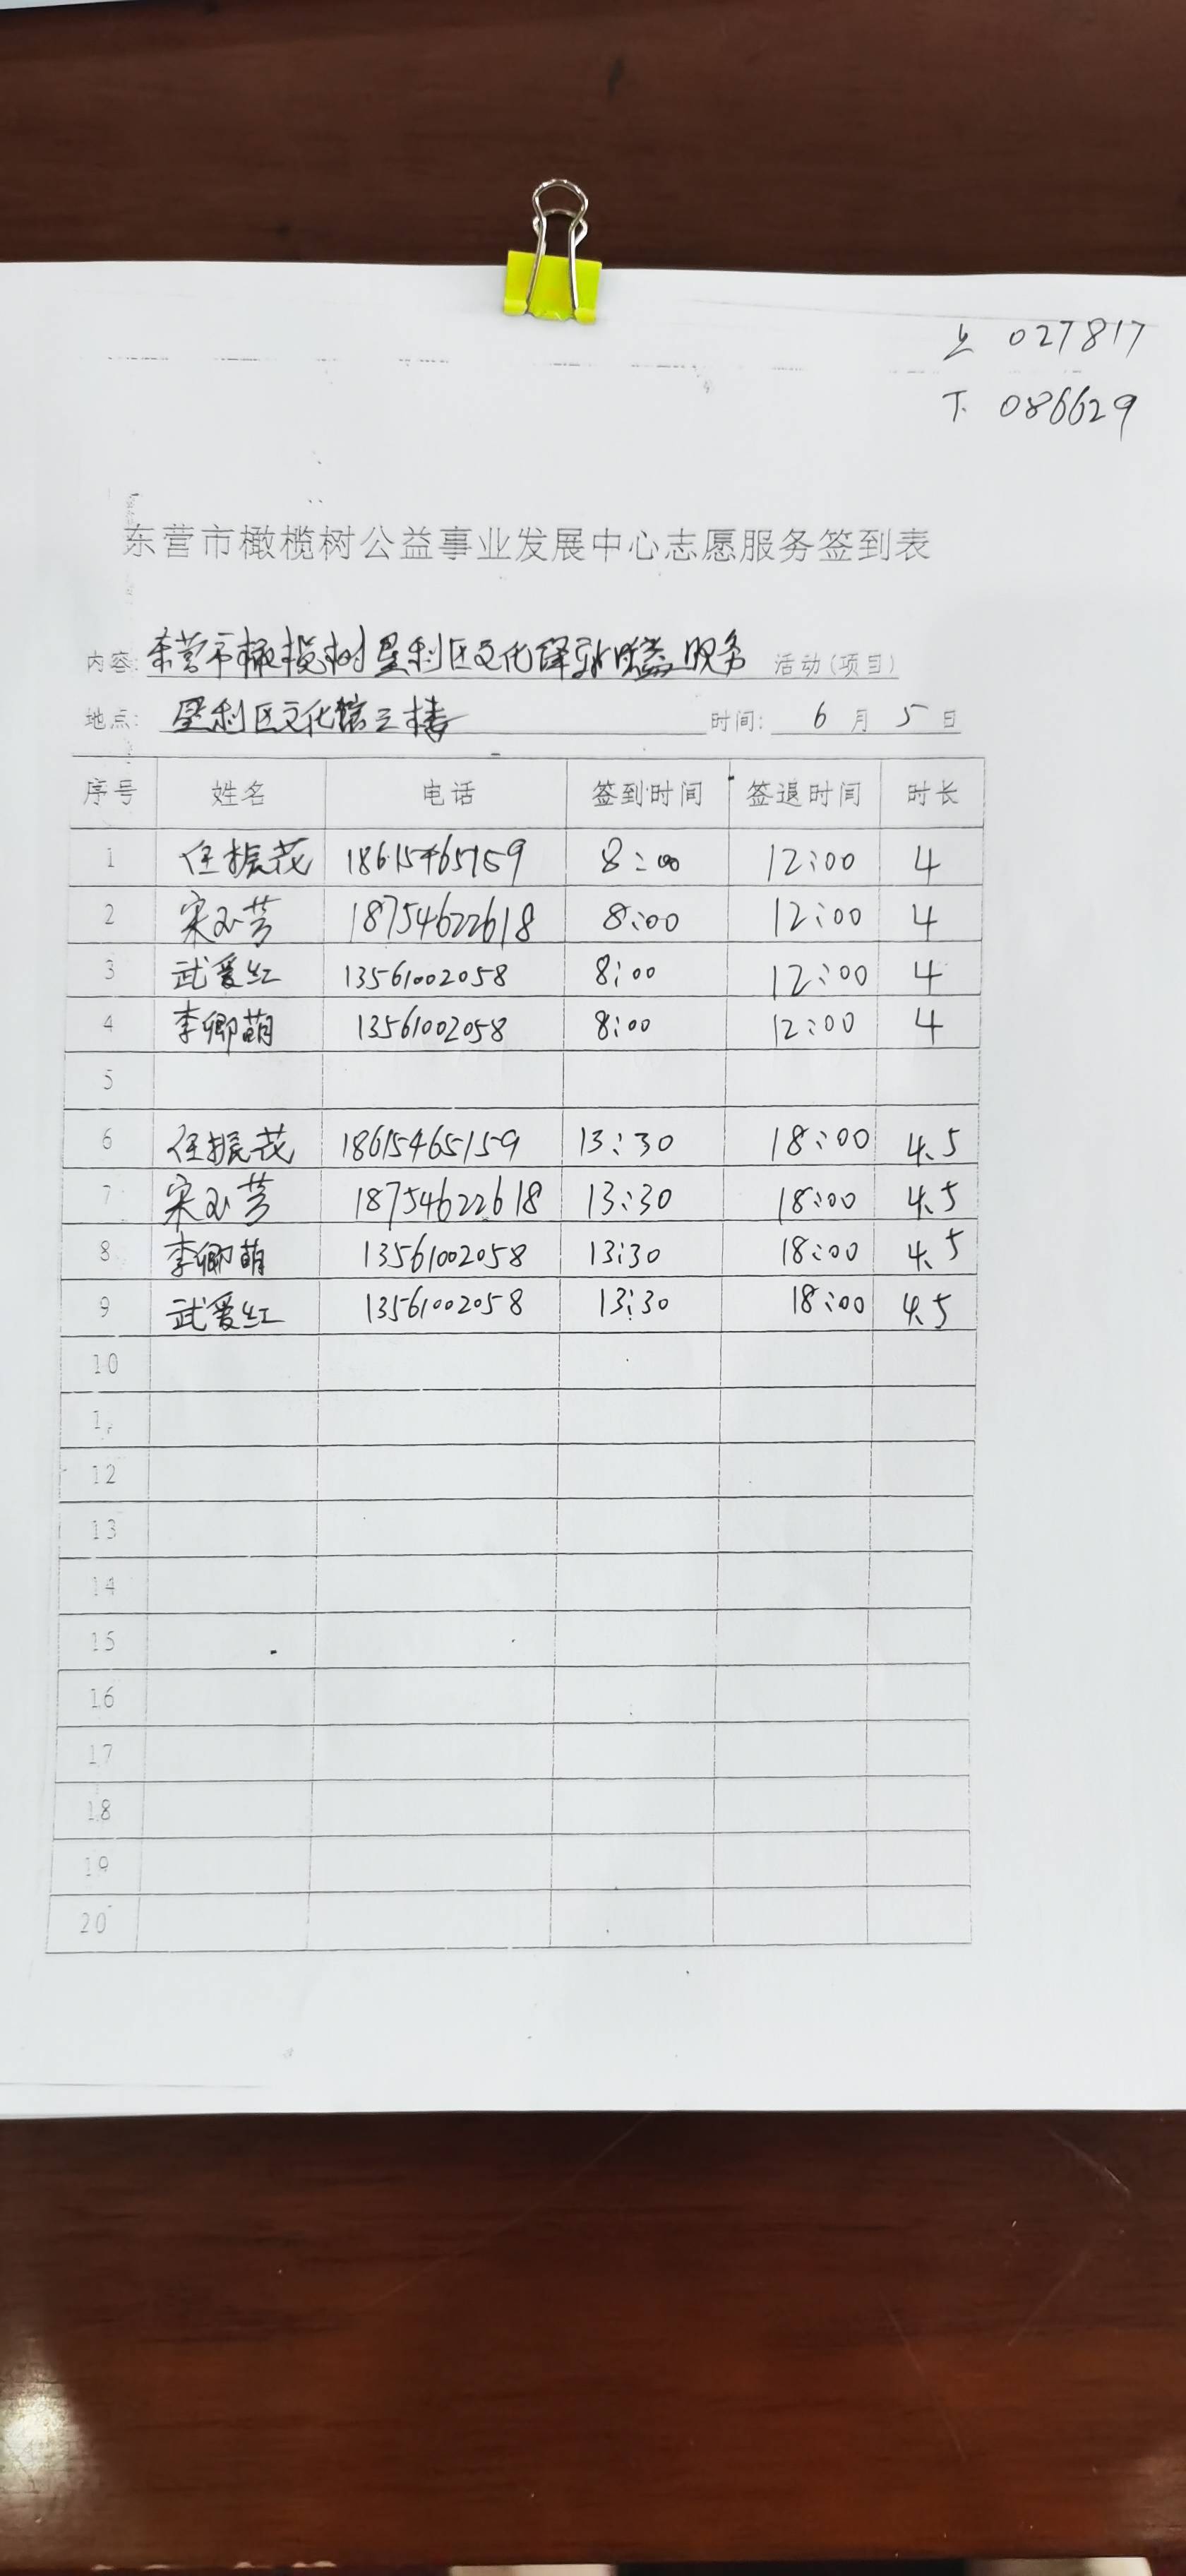 上 027817
下 086629
东营市橄榄树公益事业发展中心志愿服务签到表
内容: 东营市橄榄树垦利区文化驿站公益服务 活动(项目)
地点: 垦利区文化馆三楼 时间: 6月5日
序号 姓名 电话 签到时间 签退时间 时长
1 任振茂 18615465159 8:00 12:00 4
2 宋玉芳 18754622618 8:00 12:00 4
3 武爱红 13561002058 8:00 12:00 4
4 李卿萌 13561002058 8:00 12:00 4
5
6 任振茂 18615465159 13:30 18:00 4.5
7 宋玉芳 18754622618 13:30 18:00 4.5
8 李卿萌 13561002058 13:30 18:00 4.5
9 武爱红 13561002058 13:30 18:00 4.5
10
1
12
13
14
15
16
17
18
19
20